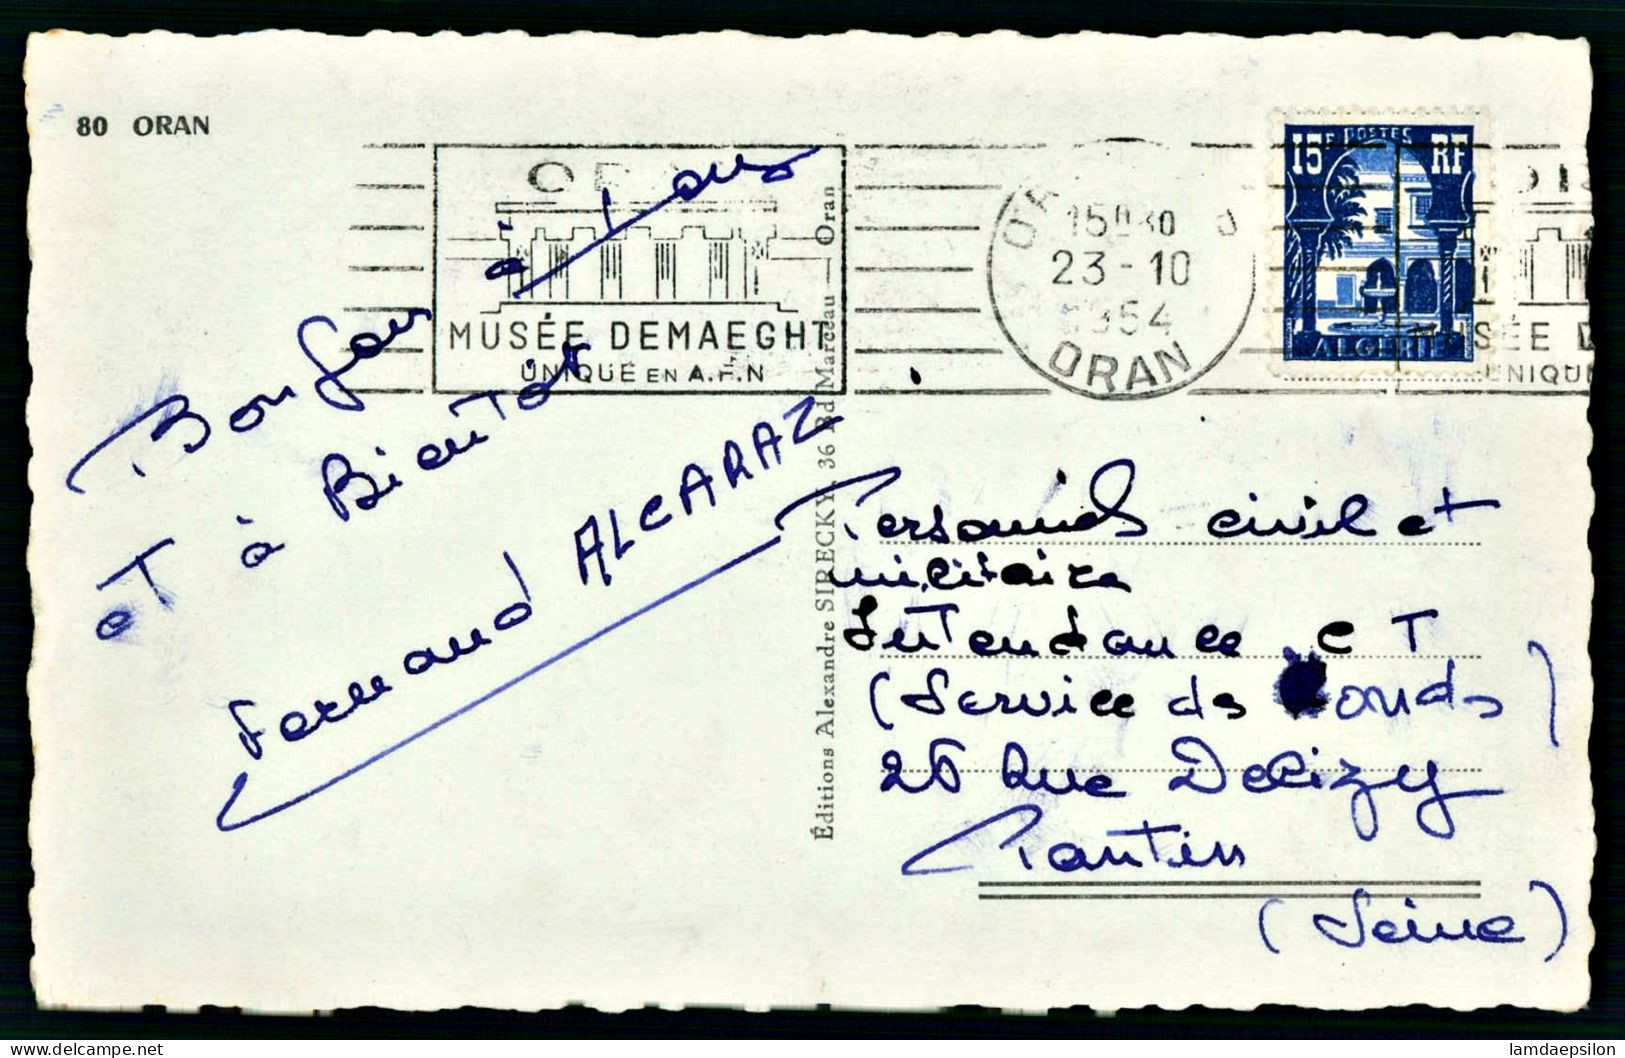 80 ORAN
ORAN
MUSÉE DEMAEGHT
UNIQUE EN A.F.N
15H30
23-10
1954
ORAN
15F POSTES RF
ALGERIE
MUSÉE D
UNIQU
Bonjour à tous
et à Bientôt
Fernand ALCARAZ
Éditions Alexandre SIRECKY, 36 Bd Marceau — Oran
Personnels civil et
militaire
Intendance CT
(Service des Fonds)
26 Rue Delizy
Pantin
(Seine)
lamdaepsilon
delcampe.net